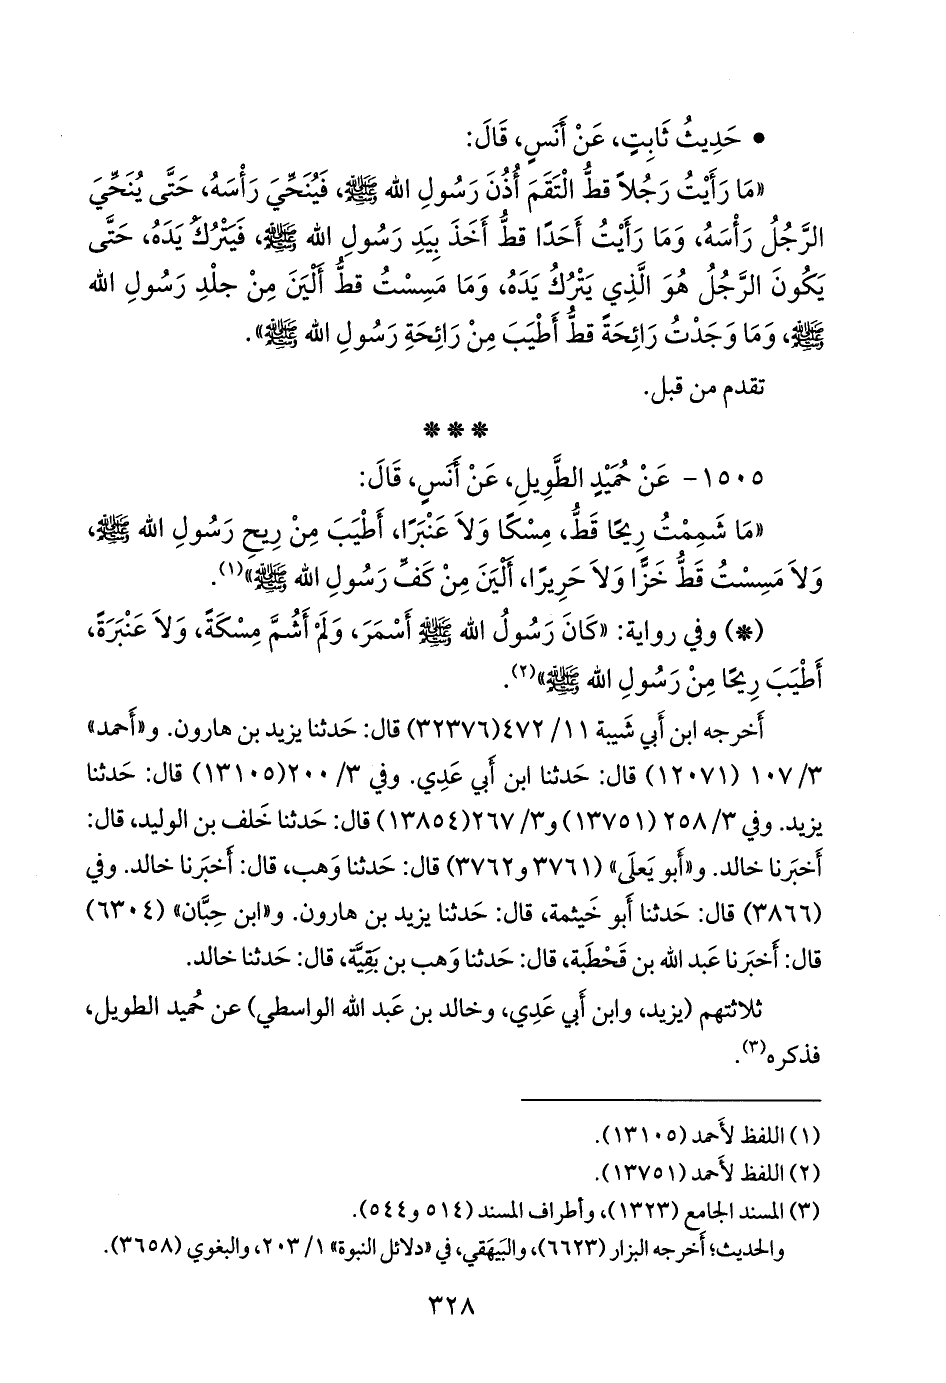 • حَدِيثُ ثَابِتٍ، عَنْ أَنَسٍ، قَالَ:
«مَا رَأَيْتُ رَجُلاً قطُّ الْتَقَمَ أُذُنَ رَسُولِ الله ﷺ، فَيُنَحِّيَ رَأْسَهُ، حَتَّى يُنَحِّيَ
الرَّجُلُ رَأْسَهُ، وَمَا رَأَيْتُ أَحَدًا قطُّ أَخَذَ بِيَدِ رَسُولِ الله ﷺ، فَيَتْرُكُ يَدَهُ، حَتَّى
يَكُونَ الرَّجُلُ هُوَ الَّذِي يَتْرُكُ يَدَهُ، وَمَا مَسِسْتُ قطُّ أَلْيَنَ مِنْ جلْدِ رَسُولِ الله
ﷺ، وَمَا وَجَدْتُ رَائِحَةً قطُّ أَطْيَبَ مِنْ رَائِحَةِ رَسُولِ الله ﷺ».
تقدم من قبل.
* * *
١٥٠٥- عَنْ حُمَيْدٍ الطَّوِيلِ، عَنْ أَنَسٍ، قَالَ:
«مَا شَمِمْتُ رِيحًا قَطُّ، مِسْكًا وَلاَ عَنْبَرًا، أَطْيَبَ مِنْ رِيحِ رَسُولِ الله ﷺ،
وَلاَ مَسِسْتُ قَطُّ خَزًّا وَلاَ حَرِيرًا، أَلْيَنَ مِنْ كَفِّ رَسُولِ الله ﷺ»(١).
(*) وفي رواية: «كَانَ رَسُولُ الله ﷺ أَسْمَرَ، وَلَمْ أَشُمَّ مِسْكَةً، وَلاَ عَنْبَرَةً،
أَطْيَبَ رِيحًا مِنْ رَسُولِ الله ﷺ»(٢).
أَخرجه ابن أَبي شَيبة ١١/ ٤٧٢(٣٢٣٧٦) قال: حَدثنا يزيد بن هارون. و«أَحمد»
٣/ ١٠٧ (١٢٠٧١) قال: حَدثنا ابن أَبي عَدِي. وفي ٣/ ٢٠٠(١٣١٠٥) قال: حَدثنا
يزيد. وفي ٣/ ٢٥٨ (١٣٧٥١) و٣/ ٢٦٧(١٣٨٥٤) قال: حَدثنا خَلف بن الوليد، قال:
أَخبَرنا خالد. و«أَبو يَعلَى» (٣٧٦١ و٣٧٦٢) قال: حَدثنا وَهب، قال: أَخبَرنا خالد. وفي
(٣٨٦٦) قال: حَدثنا أَبو خَيثمة، قال: حَدثنا يزيد بن هارون. و«ابن حِبَّان» (٦٣٠٤)
قال: أَخبَرنا عَبد الله بن قَحْطَبة، قال: حَدثنا وَهب بن بَقِيَّة، قال: حَدثنا خالد.
ثلاثتهم (يزيد، وابن أَبي عَدِي، وخالد بن عَبد الله الواسطي) عن حُميد الطويل،
فذكره(٣).
(١) اللفظ لأَحمد (١٣١٠٥).
(٢) اللفظ لأَحمد (١٣٧٥١).
(٣) المسند الجامع (١٣٢٣)، وأطراف المسند (٥١٤ و٥٤٤).
والحديث؛ أَخرجه البزار (٦٦٢٣)، والبَيهَقي، في «دلائل النبوة» ١/ ٢٠٣، والبغوي (٣٦٥٨).
٣٢٨